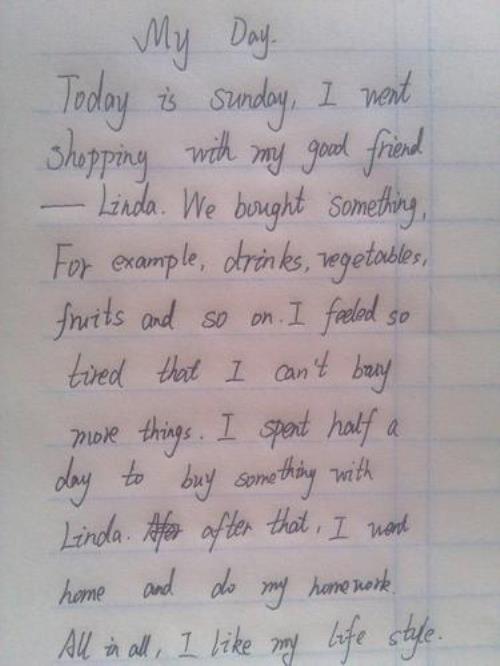 My Day.
Today is sunday, I went
shopping with my good friend
— Linda. We bought something,
For example, drinks, vegetables,
fruits and so on. I feeled so
tired that I can't buy
more things. I spent half a
day to buy something with
Linda. after that, I went
home and do my homework.
All in all, I like my life style.